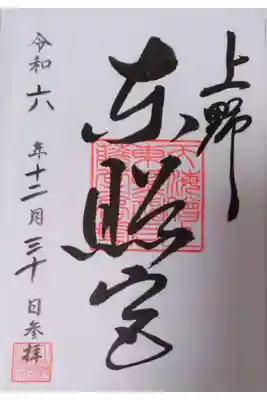 上野
東照宮
令和六年十二月三十日参拝